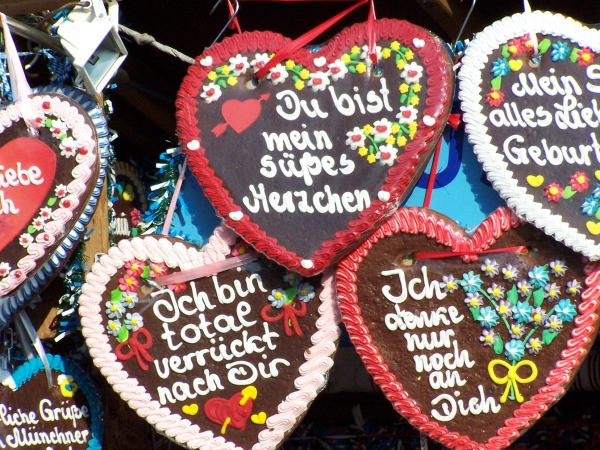 Du bist
mein
süßes
Herzchen
Mein S
alles Lieb
Geburt
iebe
ch
Ich bin
total
verrückt
nach Dir
Ich
danke
nur
noch
an
Dich
liche Grüße
München